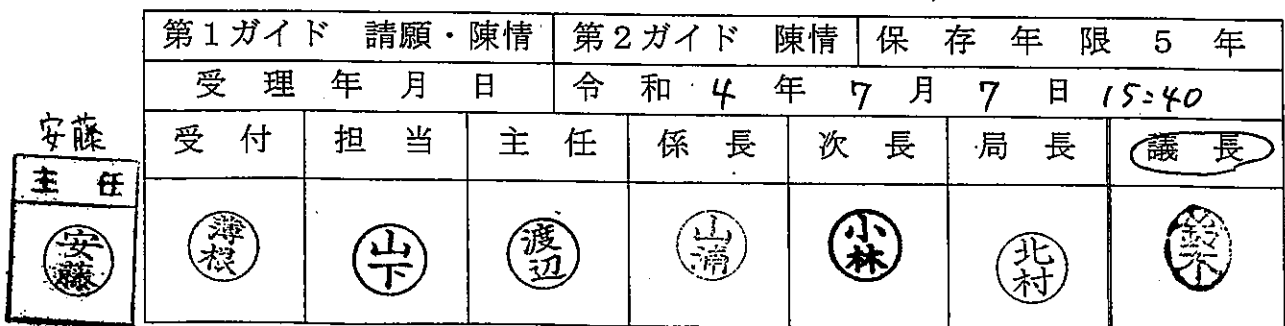 第1ガイド 請願・陳情 第2ガイド 陳情 保存年限5年
受理年月日 令和4年7月7日 15:40
安藤
主任
受付 担当 主任 係長 次長 局長 議長
安藤 薄根 山下 渡辺 山浦 小林 北村 鈴木